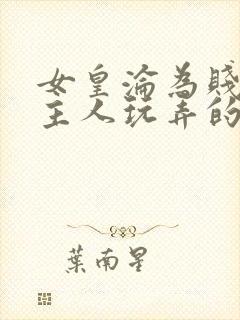 女皇淪為賤
主人玩弄的
葉南星